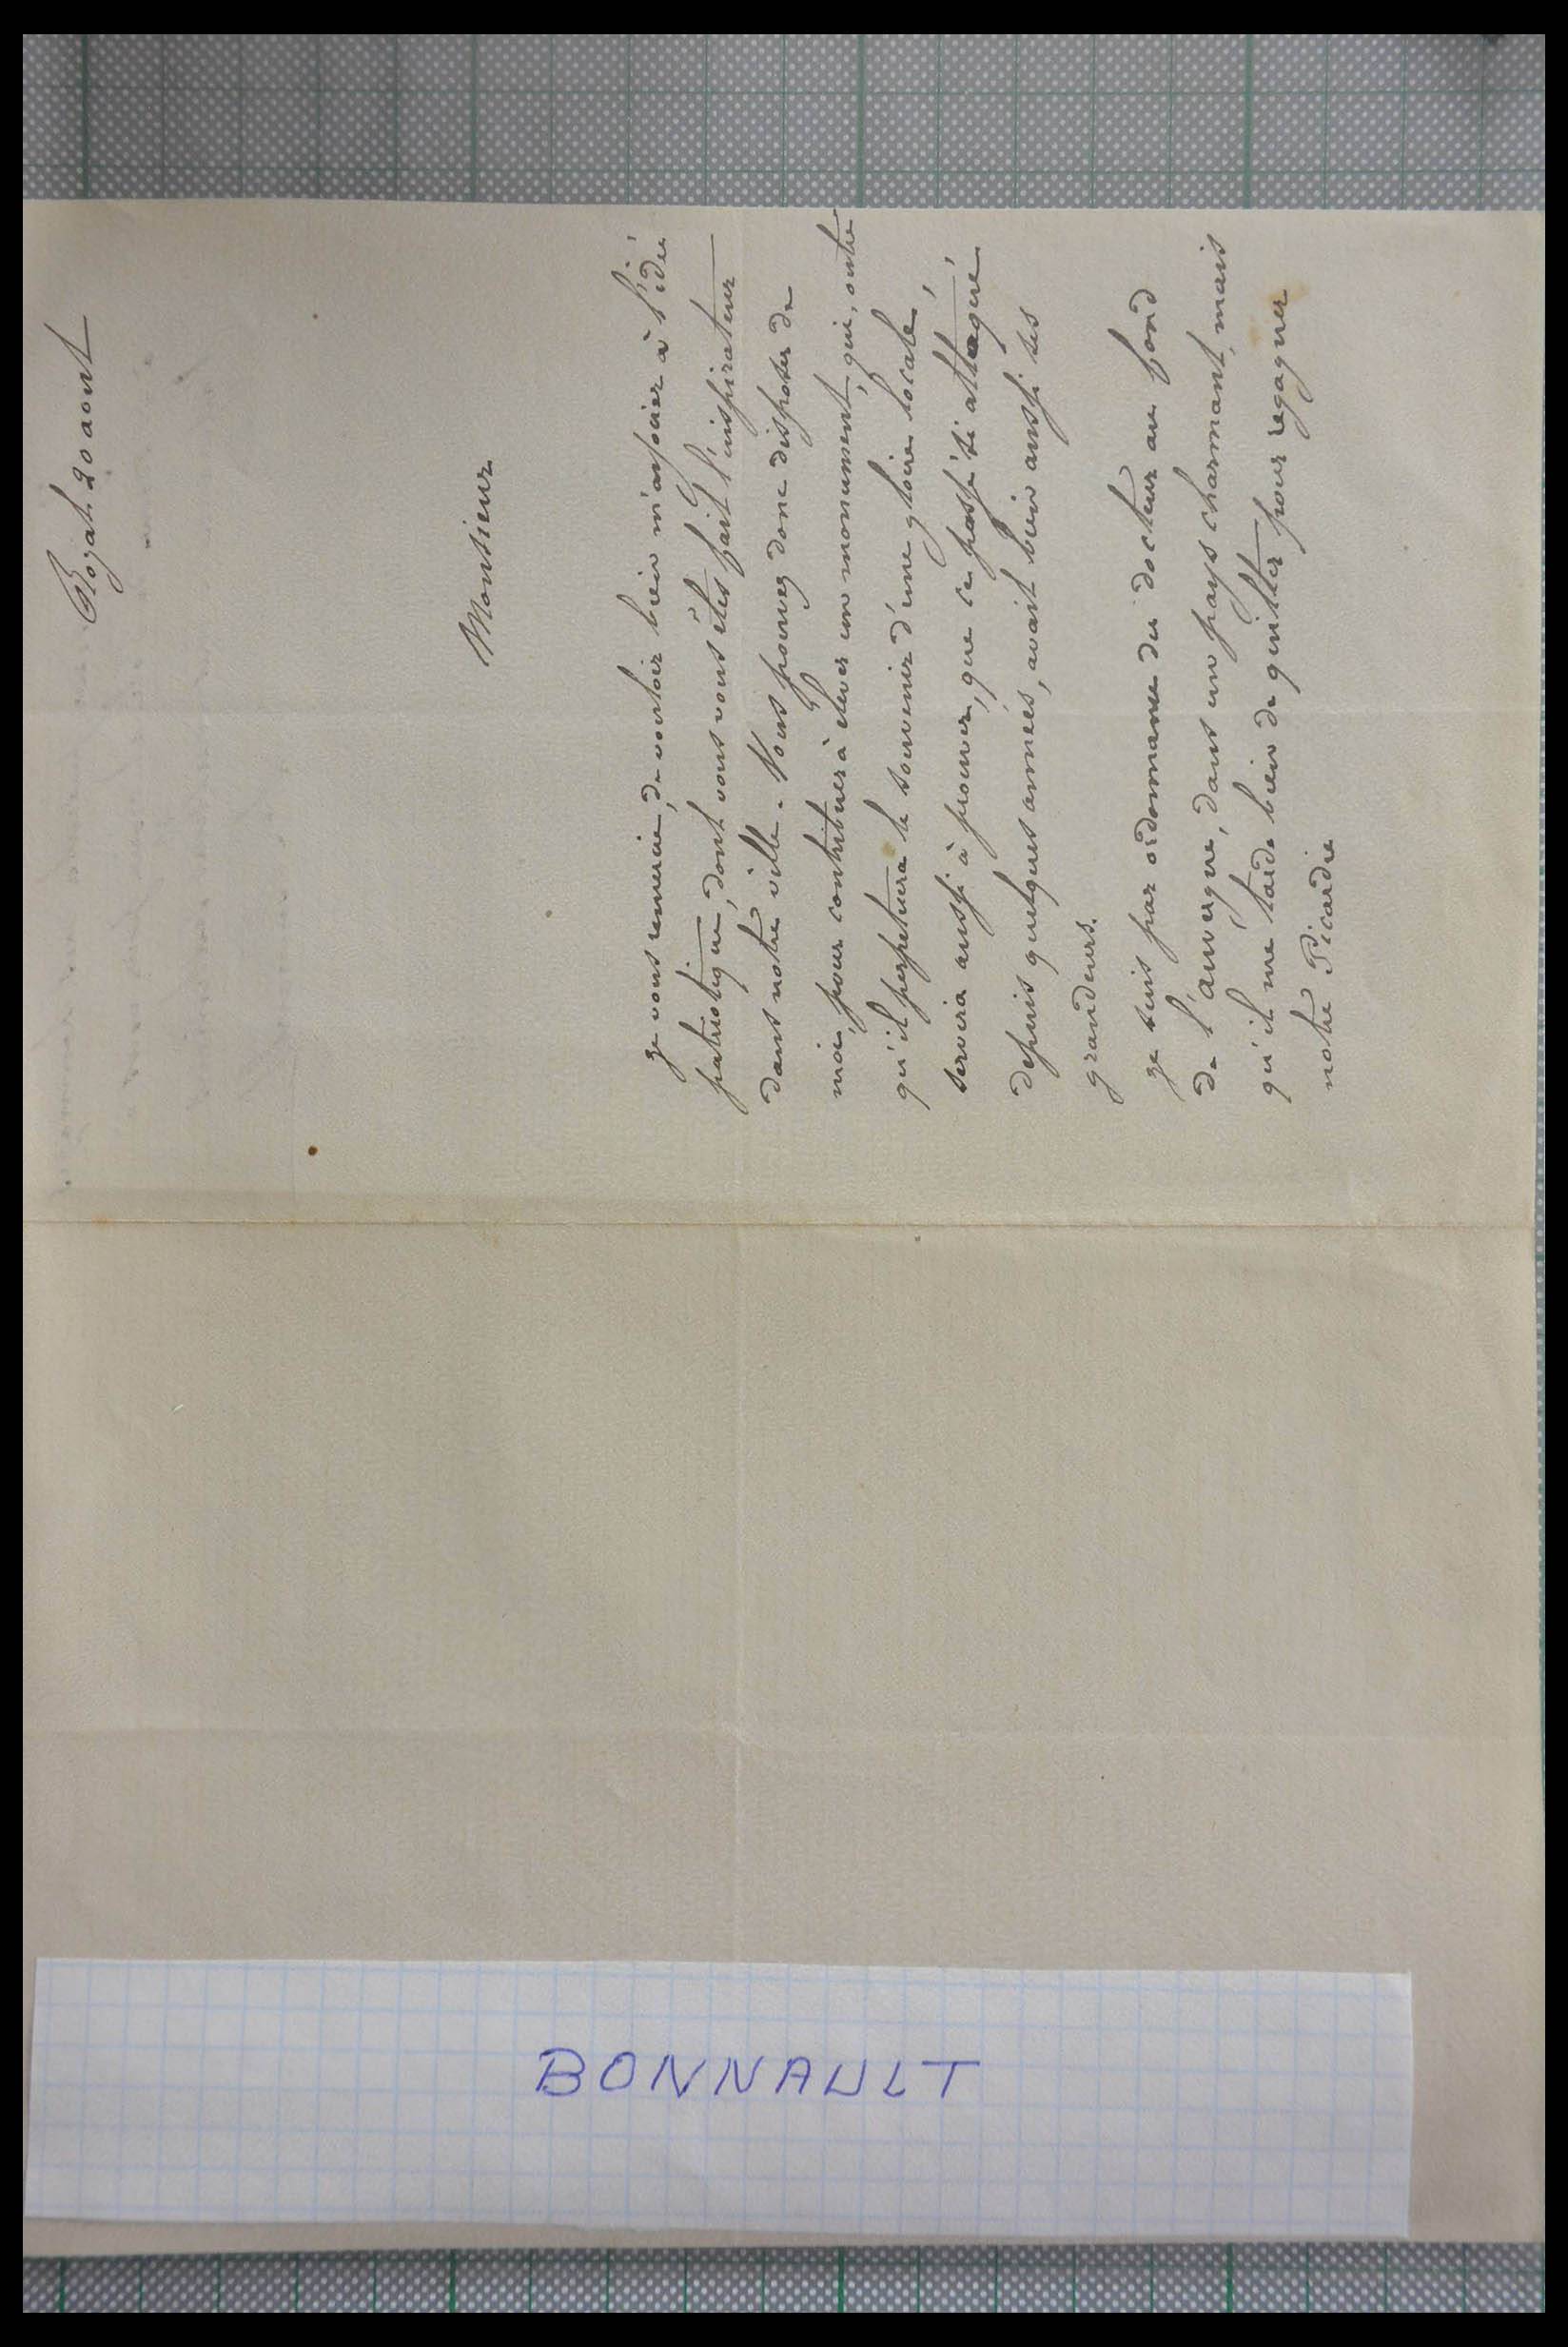 Royat 20 aout
Monsieur
je vous remercie, de vouloir bien m'associer à l'idée
patriotique, dont vous vous êtes fait l'inspirateur
dans notre ville. Vous pouvez donc disposer de
moi, pour contribuer à élever un monument, qui, outre
qu'il perpetuera le souvenir d'une gloire locale,
servira aussi à prouver, que ce passé si attaqué
depuis quelques années, avait bien aussi ses
grandeurs.
je suis par ordonnance du docteur au fond
de l'auvergne, dans un pays charmant, mais
qu'il me tarde bien de quitter pour regagner
notre Picardie
BONNAULT